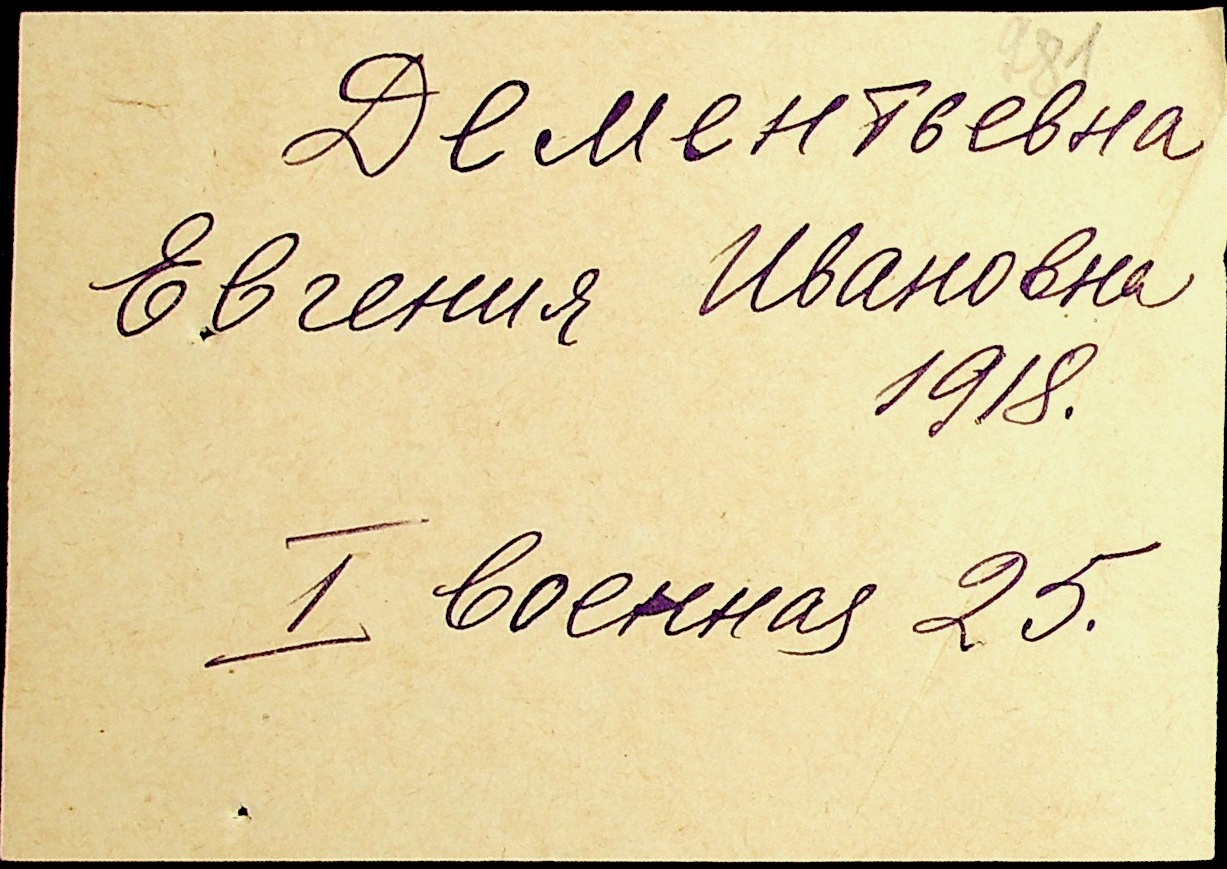 981
Дементьевна
Евгения Ивановна
1918.
I военная 25.